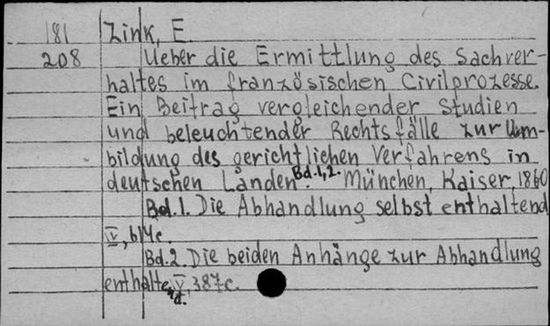 181 Zink, E.
208 Ueber die Ermittlung des Sachver-
haltes im französischen Civilprozesse.
Ein Beitrag vergleichender Studien
und beleuchtender Rechtsfälle zur Um-
bildung des gerichtlichen Verfahrens in
deutschen Landen. Bd. 1, 2. München, Kaiser, 1860
Bd. 1. Die Abhandlung selbst enthaltend
V, 614c.
Bd. 2. Die beiden Anhänge zur Abhandlung
enthaltend. V, 387c.